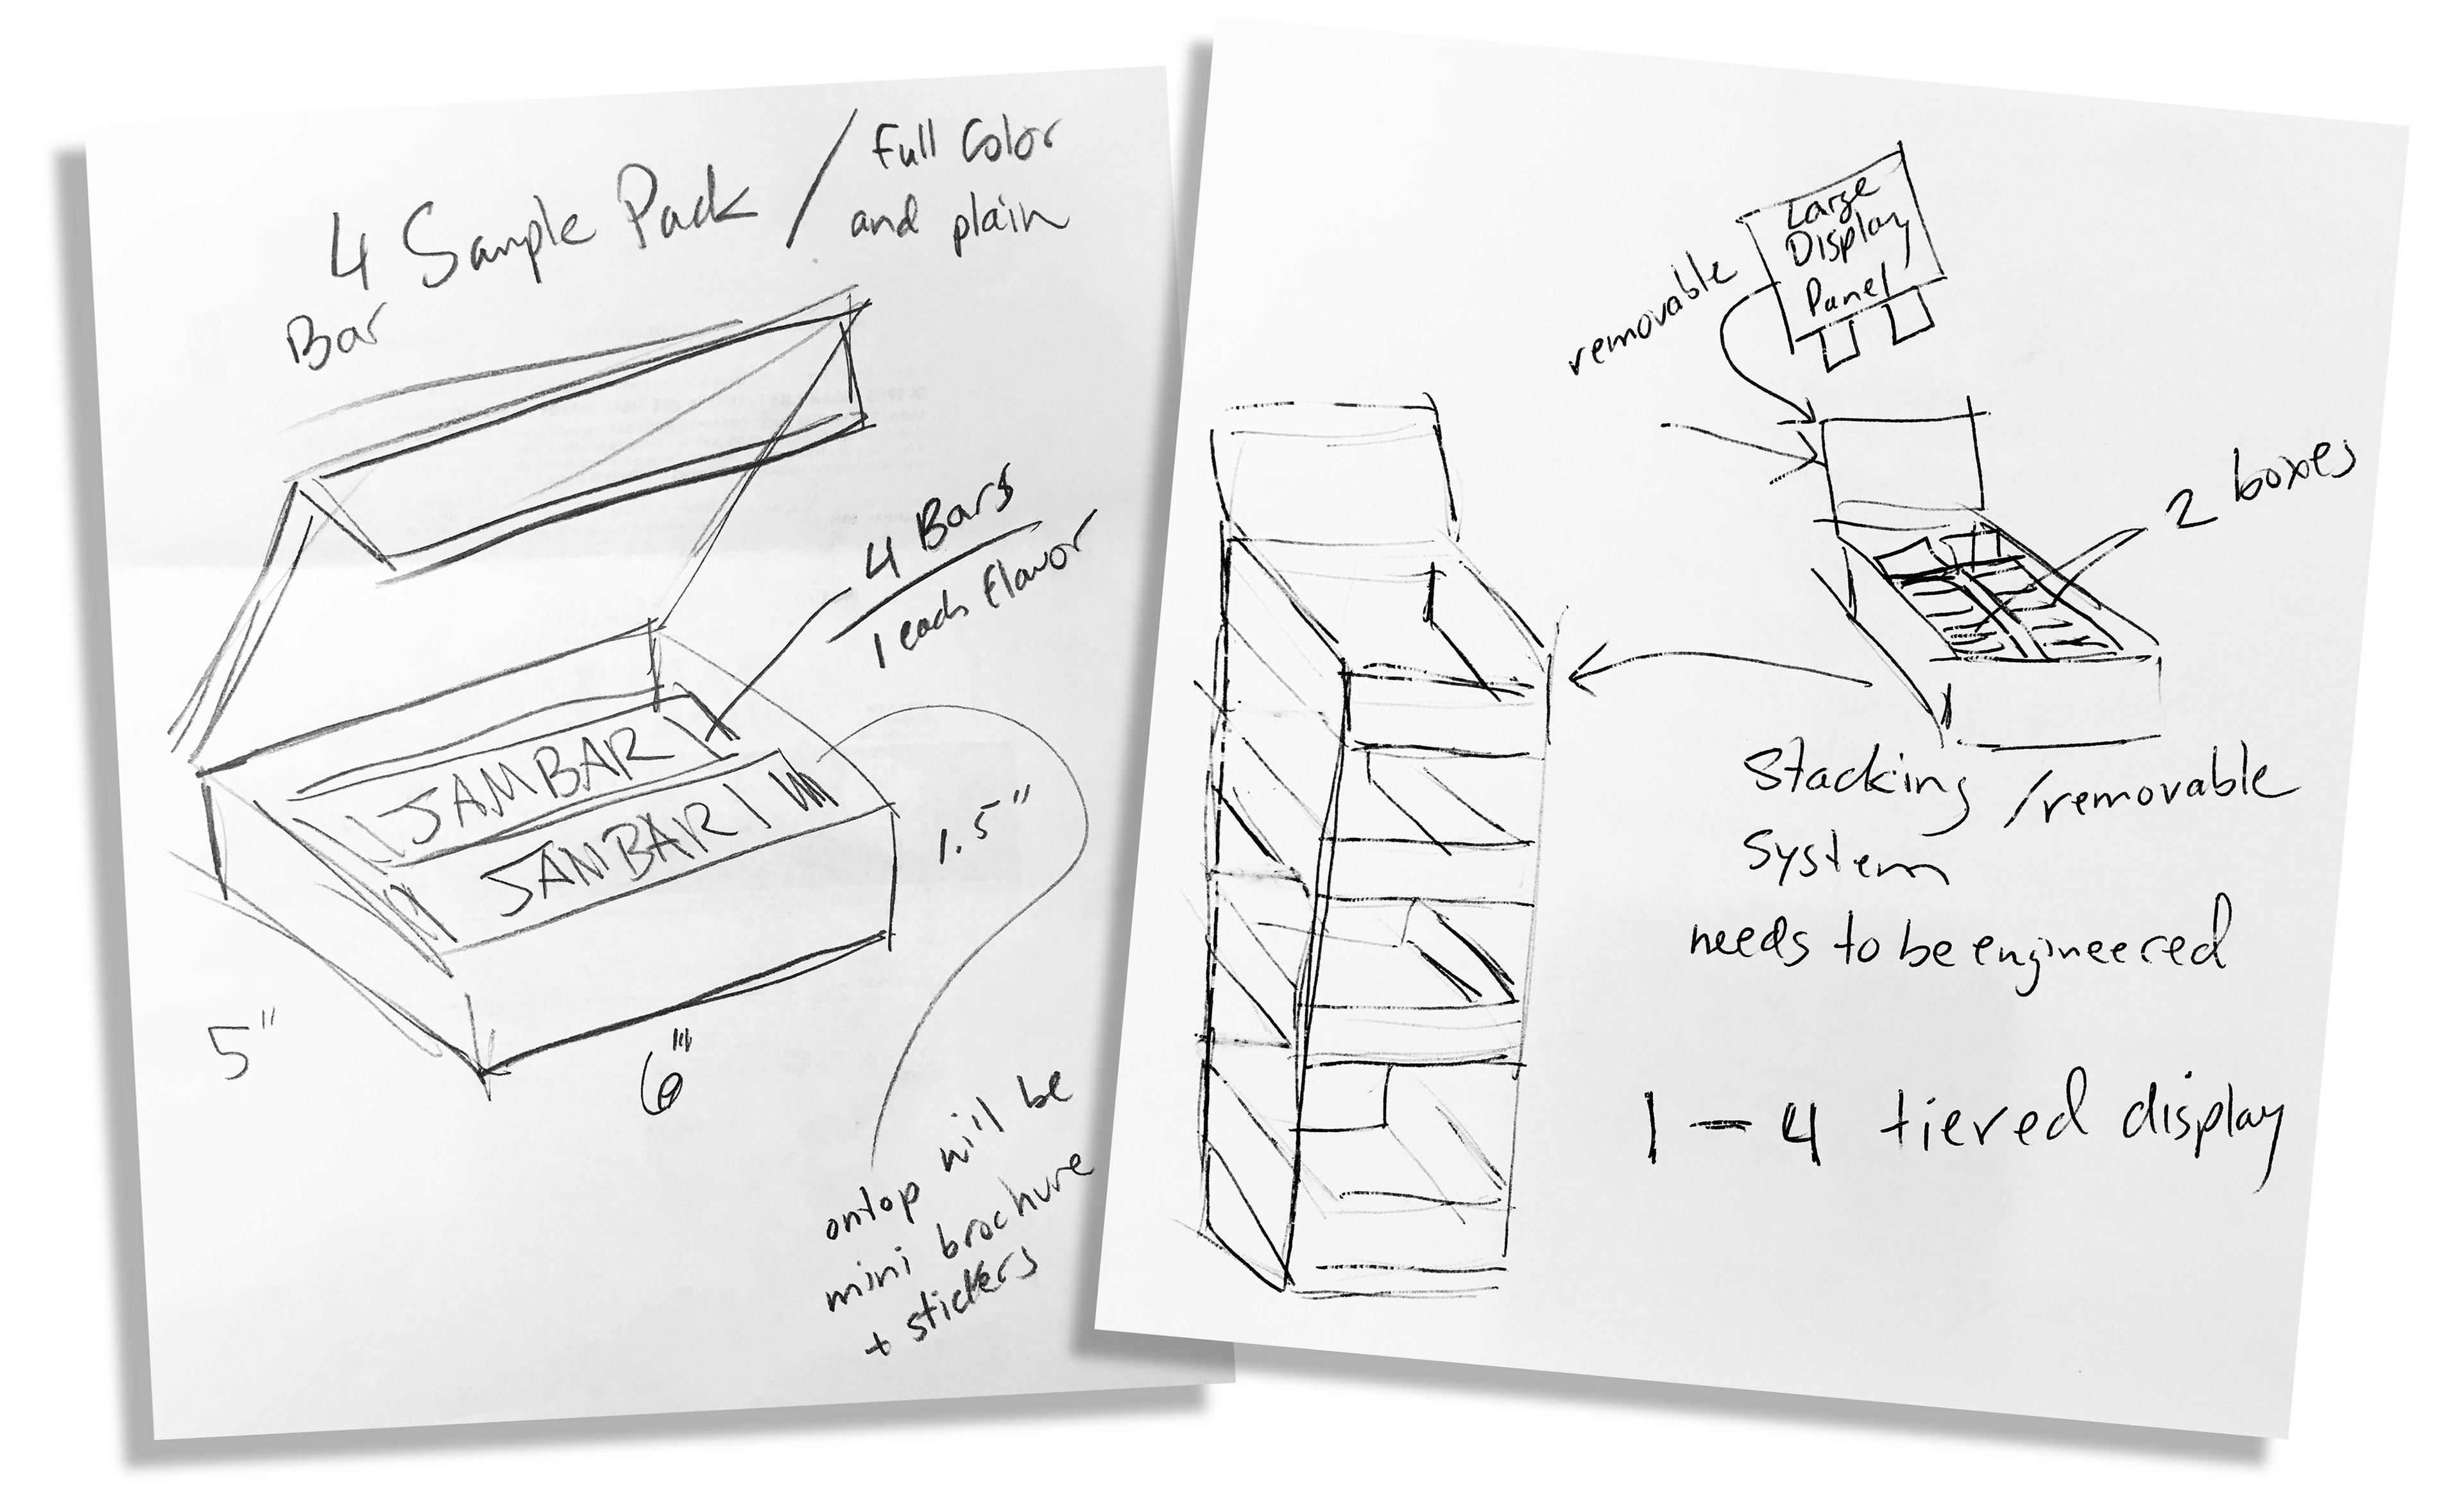 4 Sample Pack / Full Color
and plain
Bar
4 Bars
1 each flavor
JAMBAR
JAMBAR
1.5"
5"
6"
ontop will be
mini brochure
+ stickers
Large
Display
Panel
removable
2 boxes
Stacking /removable
System
needs to be engineered
1 - 4 tiered display